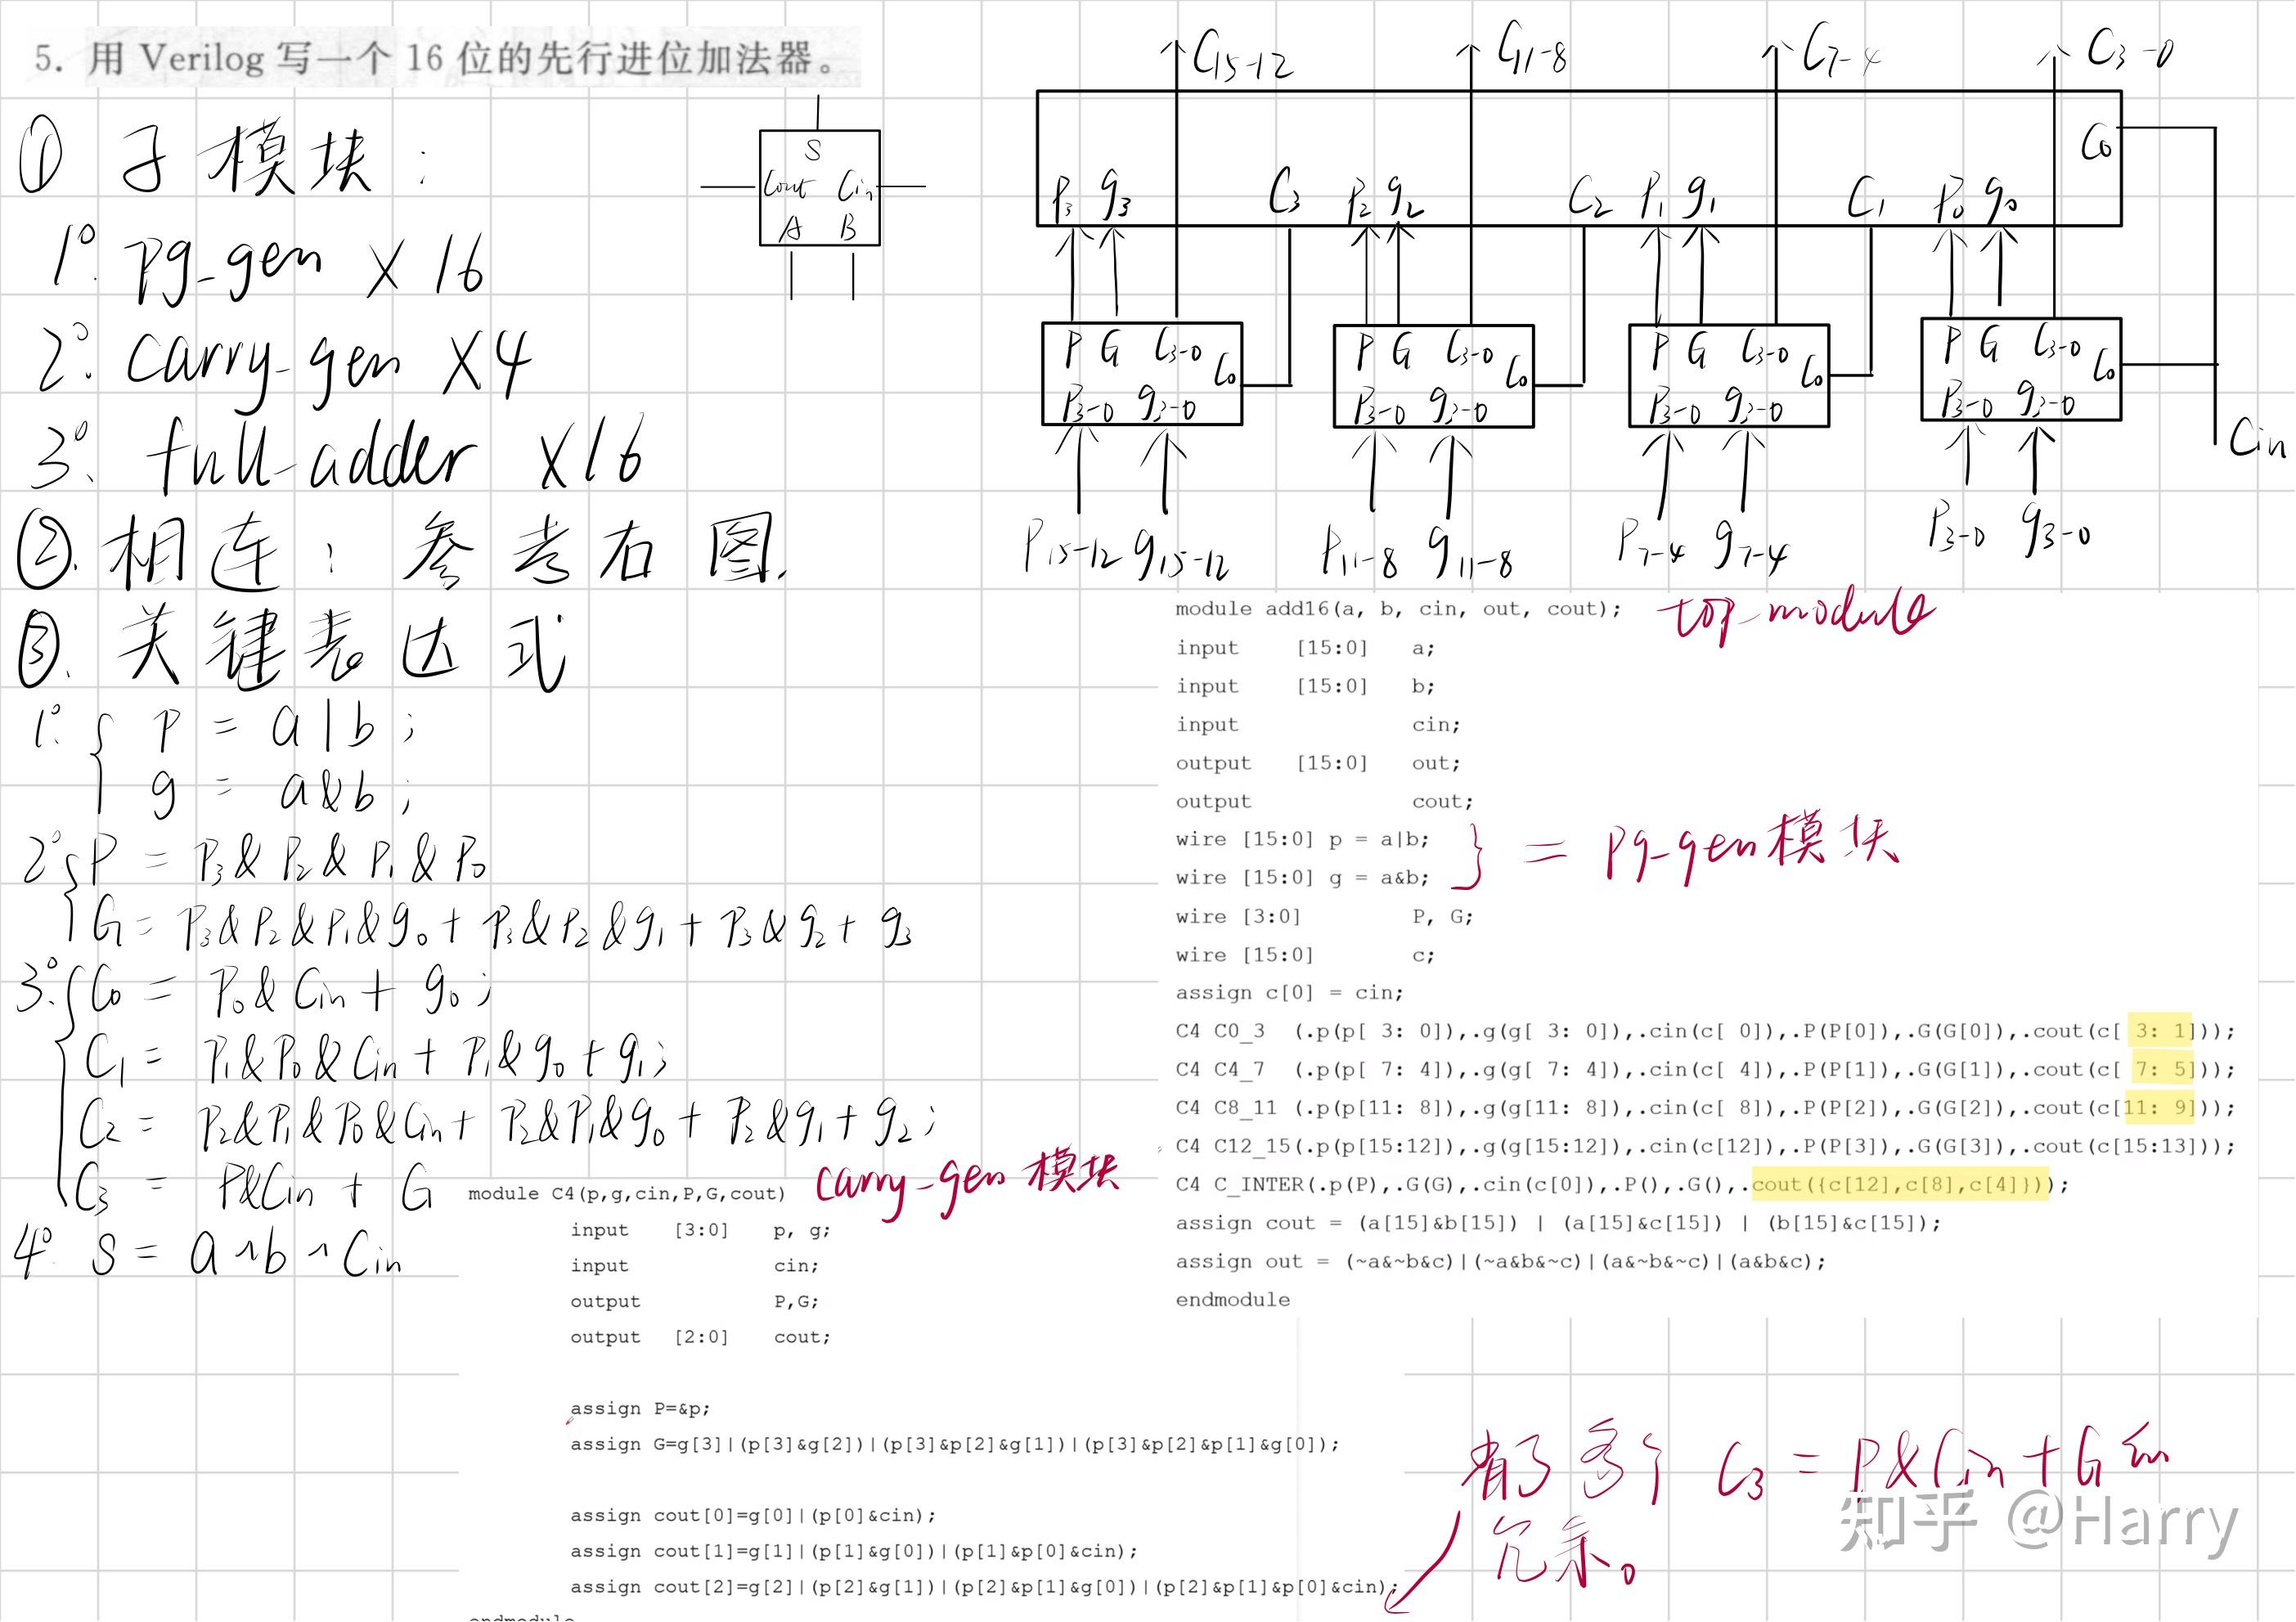 5. 用 Verilog 写一个 16 位的先行进位加法器。
① 子模块:
1° pg-gen X 16
2° carry-gen X4
3° full-adder X16
②. 相连: 参考右图.
③. 关键表达式
1° p = a|b;
g = a&b;
2° P = P3& P2& P1& P0
G= P3&P2&P1&g0+ P3&P2&g1+ P3&g2+ g3
3° C0 = P0&Cin+ g0;
C1= P1&P0&Cin+ P1&g0+g1;
C2= P2&P1&P0&Cin+ P2&P1&g0+ P2&g1+g2;
C3 = P&Cin + G
4° S= a^b^Cin
S
Cout Cin
A B
C15-12 C11-8 C7-4 C3-0
C0
P3 g3 C3 P2 g2 C2 P1 g1 C1 P0 g0
P G C3-0 C0 P G C3-0 C0 P G C3-0 C0 P G C3-0 C0
P3-0 g3-0 P3-0 g3-0 P3-0 g3-0 P3-0 g3-0
Cin
P15-12 g15-12 P11-8 g11-8 P7-4 g7-4 P3-0 g3-0
module add16(a, b, cin, out, cout); top-module
input [15:0] a;
input [15:0] b;
input cin;
output [15:0] out;
output cout;
wire [15:0] p = a|b;
wire [15:0] g = a&b;
} = pg-gen模块
wire [3:0] P, G;
wire [15:0] c;
assign c[0] = cin;
C4 C0_3 (.p(p[ 3: 0]),.g(g[ 3: 0]),.cin(c[ 0]),.P(P[0]),.G(G[0]),.cout(c[ 3: 1]));
C4 C4_7 (.p(p[ 7: 4]),.g(g[ 7: 4]),.cin(c[ 4]),.P(P[1]),.G(G[1]),.cout(c[ 7: 5]));
C4 C8_11 (.p(p[11: 8]),.g(g[11: 8]),.cin(c[ 8]),.P(P[2]),.G(G[2]),.cout(c[11: 9]));
C4 C12_15(.p(p[15:12]),.g(g[15:12]),.cin(c[12]),.P(P[3]),.G(G[3]),.cout(c[15:13]));
C4 C_INTER(.p(P),.G(G),.cin(c[0]),.P(),.G(),.cout({c[12],c[8],c[4]}));
assign cout = (a[15]&b[15]) | (a[15]&c[15]) | (b[15]&c[15]);
assign out = (~a&~b&c)|(~a&b&~c)|(a&~b&~c)|(a&b&c);
endmodule
module C4(p,g,cin,P,G,cout) carry-gen 模块
input [3:0] p, g;
input cin;
output P,G;
output [2:0] cout;
assign P=&p;
assign G=g[3]|(p[3]&g[2])|(p[3]&p[2]&g[1])|(p[3]&p[2]&p[1]&g[0]);
assign cout[0]=g[0]|(p[0]&cin);
assign cout[1]=g[1]|(p[1]&g[0])|(p[1]&p[0]&cin);
assign cout[2]=g[2]|(p[2]&g[1])|(p[2]&p[1]&g[0])|(p[2]&p[1]&p[0]&cin);
endmodule
省了多个 C3 = P&Cin+G 的
冗余。
知乎 @Harry